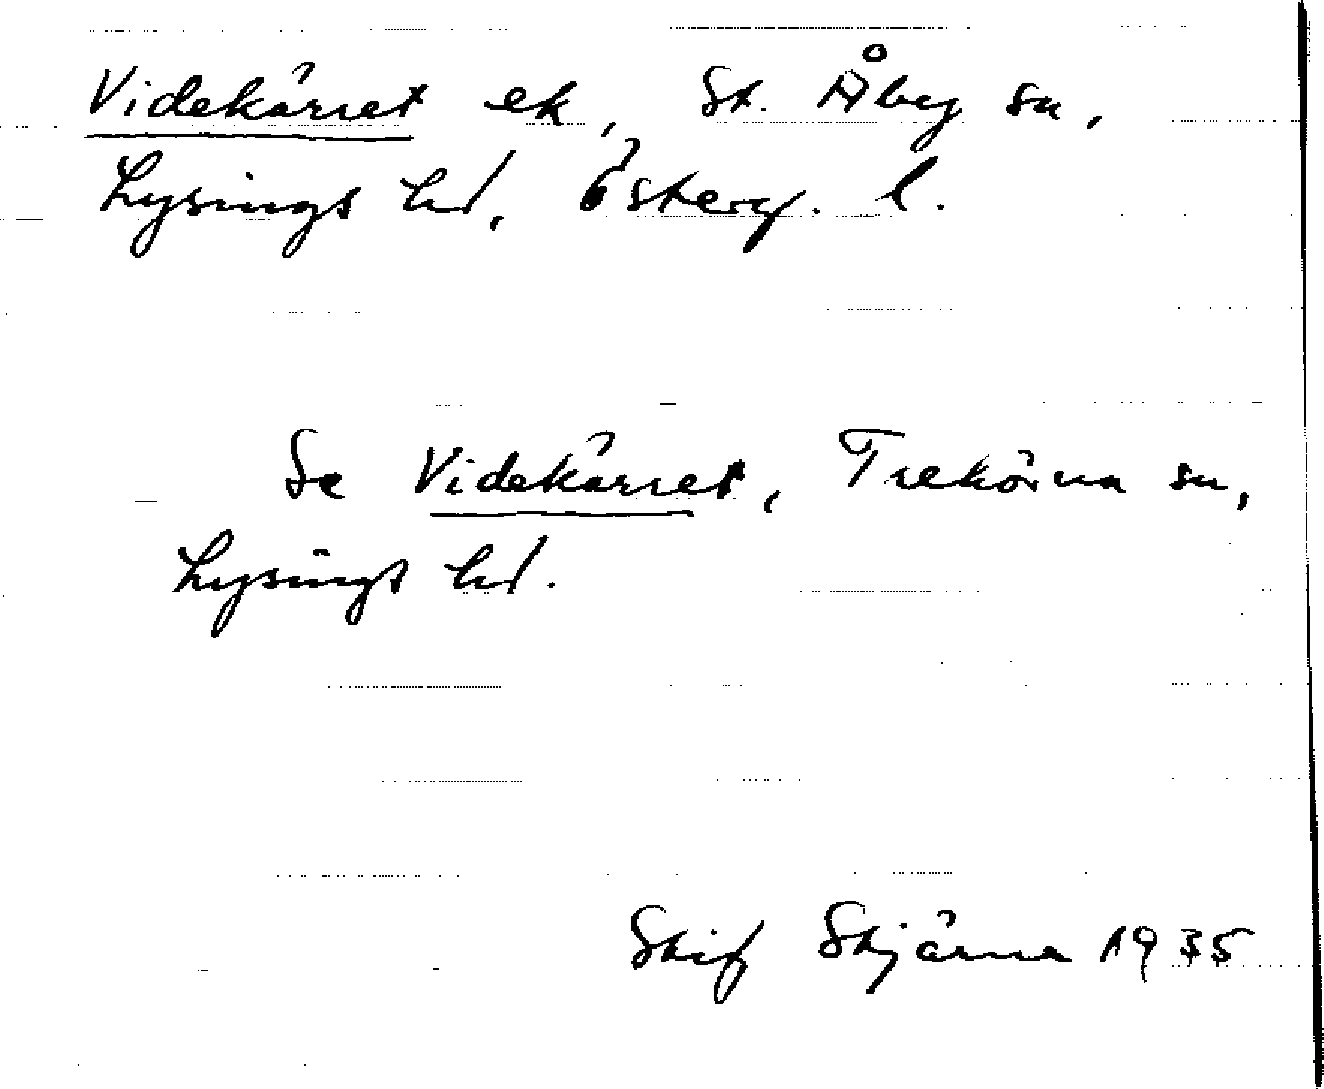 Videkärret ek, St. Åby sn,
Lysings hd, Österg. l.
Se Videkärret, Trekörna sn,
Lysings hd.
Stif Stjärna 1935